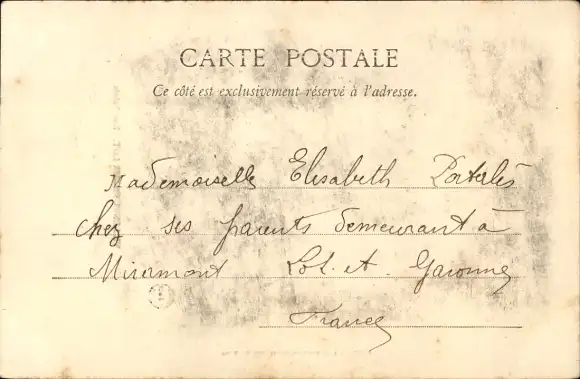 CARTE POSTALE
Ce côté est exclusivement réservé à l'adresse.
Mademoiselle Elisabeth
chez ses parents demeurant à
Miramont Lot. et Garonne
France